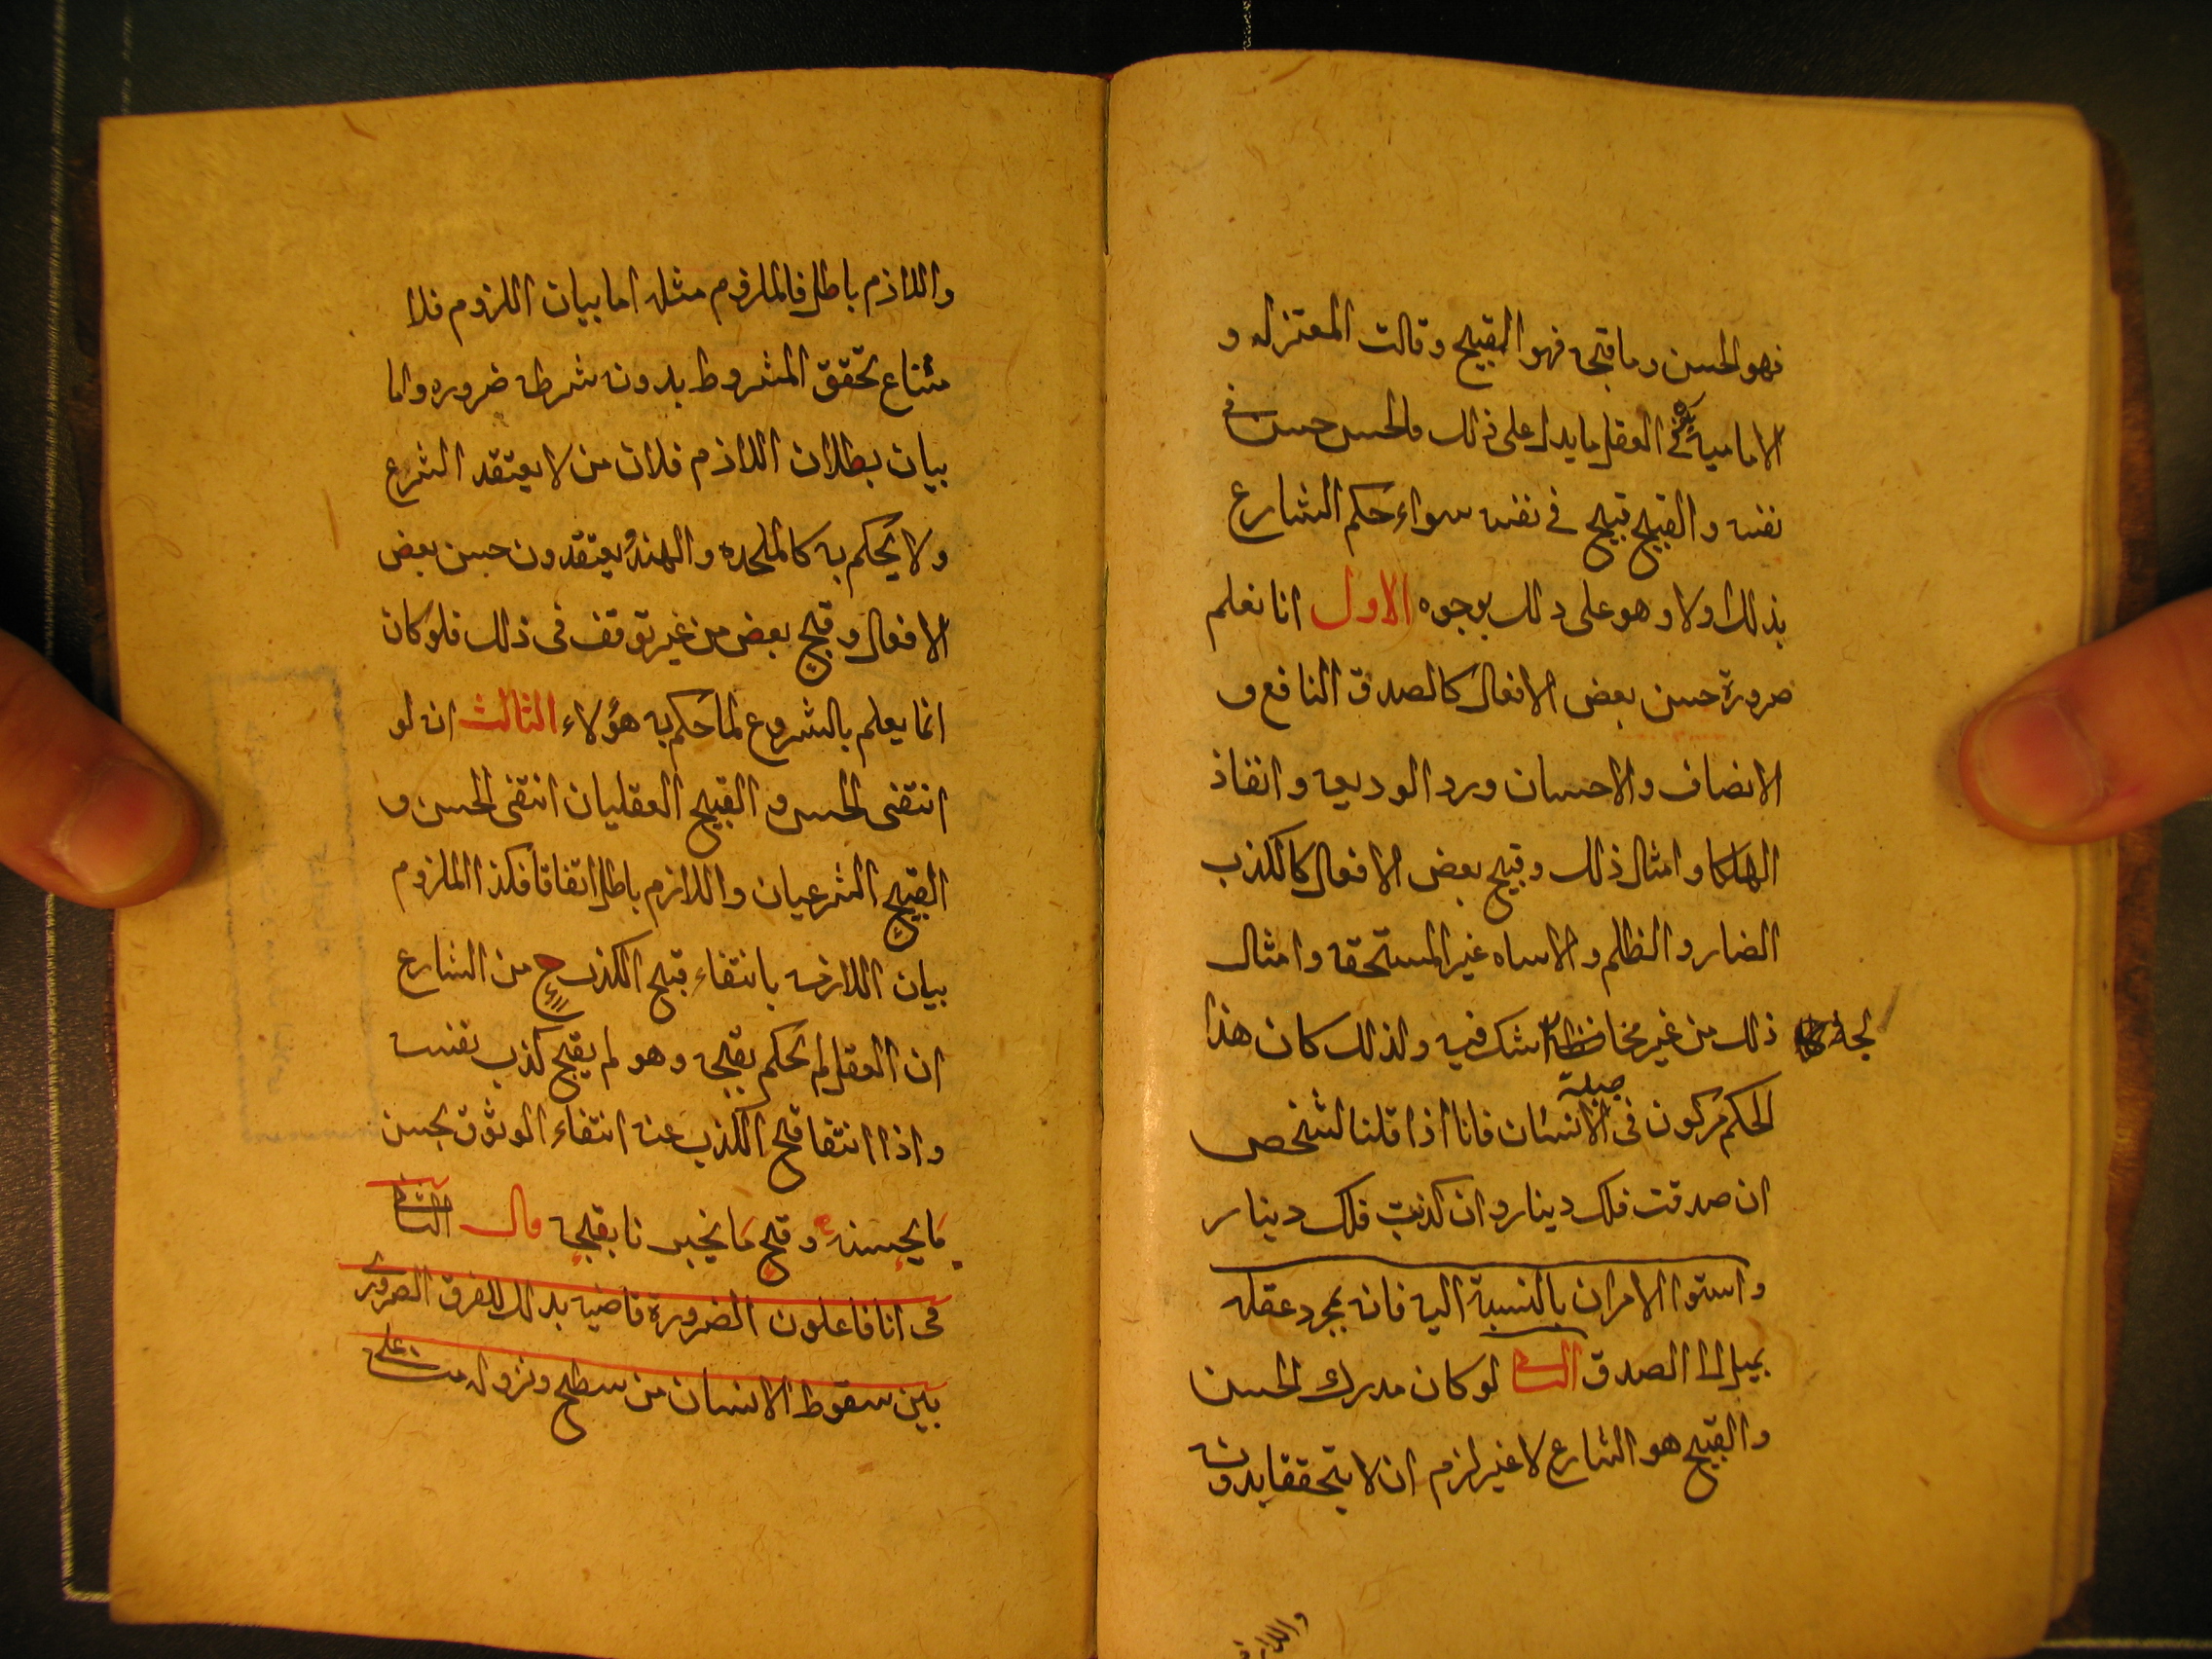 فهو الحسن وما قبحه فهو القبيح وقالت المعتزله و
الاماميه في العقل ما يدل على ذلك فالحسن حسن في
نفسه والقبيح قبيح في نفسه سواء حكم الشارع
بذلك اولا وهو على ذلك بوجوه الاول انا نعلم
ضرورة حسن بعض الافعال كالصدق النافع و
الانصاف والاحسان ورد الوديعه وانقاذ
الهلكا وامثال ذلك وقبيح بعض الافعال كالكذب
الضار والظلم والاساه غير المستحقه وامثال
ذلك من غير مخا شك فيه ولذلك كان هذا
لجة
الحكم مركون في الانسان فانا اذا قلنا لشخص
جبلة
ان صدقت فلك دينار وان كذبت فلك دينار
واستوا الامران بالنسبة اليه فانه بمجرد عقله
يميل الى الصدق الثاني لو كان مدرك الحسن
والقبيح هو الشارع لا غير لزم ان لا يتحققا بدونه
واللازم
واللاذم باطل فالملزوم مثله اما بيان اللزوم فلا
متناع تحقق المشروط بدون شرطه ضروره واما
بيان بطلان اللاذم فلان من لا يعتقد الشرع
ولا يحكم به كالملحده والهند يعتقدون حسن بعض
الافعال وقبح بعض من غير توقف في ذلك فلو كان
انما يعلم بالشروع لما حكم به هؤلاء الثالث انه لو
انتقى الحسن والقبيح العقليان انتقى الحسن و
القبيح الشرعيان واللازم باطل اتفاقا فكذا الملزوم
بيان اللازمه بانتفاء قبح الكذب ح من الشارع
ان العقل لم يحكم بقبحه وهو لم يقبح كذب نفسه
واذا انتفا قبح الكذب عنه انتفاء الوثوق بحسن
ما يحسنه وقبح ما يخبرنا بقبحه قال الثاني
في انا فاعلون الضرورة قاضيه بذلك للفرق الضروري
بين سقوط الانسان من سطح ونزوله منه على